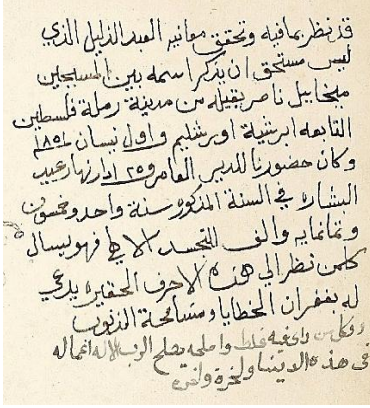 قد نظر بمافيه وتحقق معانيه العبد الذليل الذي
ليس مستحق ان يذكر اسمه بين المسيحيين
ميخاييل ناصر بقيله من مدينة رملة فلسطين
التابعه ابرشية اوبرشليم و اول نيسان ١٨٥١م
وكان حضورنا للدير العامر و ٢٥ ادار نهار عيد
البشاره في السنة المذكوره سنة واحد وخمسون
وثمانمايه والف للتجسد الالهي فهو يسال
كلمن نظر الي هذه الاحرف الحقيره يدعي
له بغفران الخطايا ومسامحة الذنوب
وكلمن راي فيه غلط واصلحه يصلح الرب الاله اعماله
في هذه الدينا والاخرة